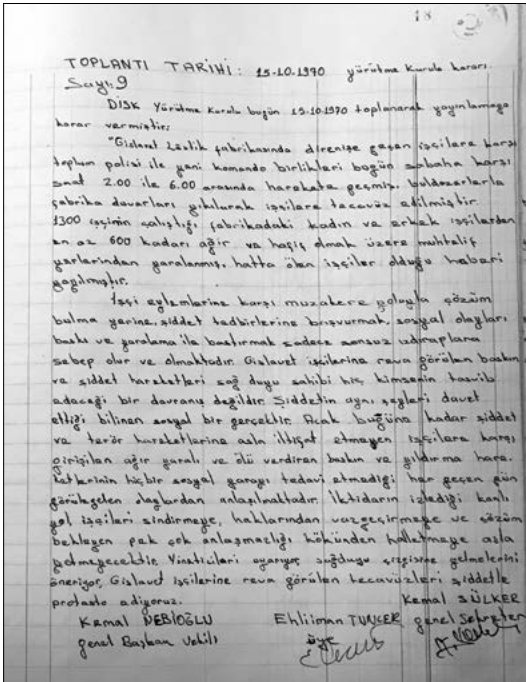 18
TOPLANTI TARİHİ: 15-10-1970 yürütme Kurulu kararı.
Sayı: 9
DİSK Yürütme Kurulu bugün 15-10-1970 toplanarak yayınlamaya
karar vermiştir:
"Gislavet Lâstik fabrikasında direnişe geçen işçilere karşı
toplum polisi ile yani komando birlikleri bugün sabaha karşı
saat 2.00 ile 6.00 arasında harekete geçmiş, buldozerlerle
fabrika duvarları yıkılarak işçilere tecavüz edilmiştir.
1300 işçinin çalıştığı fabrikadaki kadın ve erkek işçilerden
en az 600 kadarı ağır ve hafif olmak üzere muhtelif
yerlerinden yaralanmış, hatta ölen işçiler olduğu haberi
yayılmıştır.
İşçi eylemlerine karşı müzakere yoluyla çözüm
bulma yerine, şiddet tedbirlerine başvurmak, sosyal olayları
baskı ve yaralama ile bastırmak sadece sonsuz ızdıraplara
sebep olur ve olmaktadır. Gislavet işçilerine reva görülen baskın
ve şiddet hareketleri sağ duyu sahibi hiç kimsenin tasvib
edeceği bir davranış değildir. Şiddetin aynı şeyleri davet
ettiği bilinen sosyal bir gerçektir. Acak bugüne kadar şiddet
ve terör hareketlerine asla iltifat etmeyen işçilere karşı
girişilen ağır yaralı ve ölü verdiren baskın ve yıldırma hare-
ketlerinin hiçbir sosyal yarayı tedavi etmediği her geçen gün
görülegelen olaylardan anlaşılmaktadır. İktidarın izlediği kanlı
yol işçileri sindirmeye, haklarından vazgeçirmeye ve çözüm
bekleyen pek çok anlaşmazlığı kökünden halletmeye asla
yetmeyecektir. Yöneticileri uyarıyor, sağduyu çizgisine gelmelerini
öneriyor, Gislavet işçilerine reva görülen tecavüzleri şiddetle
protesto ediyoruz.
Kemal SÜLKER
Kemal NEBİOĞLU Ehliiman TUNCER genel Sekreter
genel Başkan Vekili üye